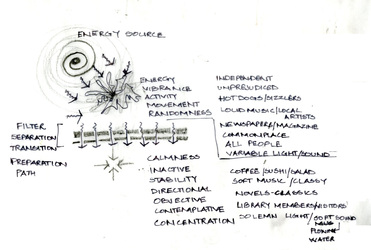 ENERGY SOURCE
ENERGY
VIBRANCE
ACTIVITY
MOVEMENT
RANDOMNESS
INDEPENDENT
UNPREJUDICED
HOT DOGS/SIZZLERS
LOUD MUSIC/LOCAL ARTISTS
NEWSPAPERS/MAGAZINE
COMMONPLACE
ALL PEOPLE
VARIABLE LIGHT/SOUND
FILTER
SEPARATION
TRANSITION
PREPARATION
PATH
CALMNESS
INACTIVE
STABILITY
DIRECTIONAL
OBJECTIVE
CONTEMPLATIVE
CONCENTRATION
COFFEE/SUSHI/SALAD
SOFT MUSIC/CLASSY
NOVELS-CLASSICS
LIBRARY MEMBERS/VISITORS
SOLEMN LIGHT/SOFT SOUND
FLOWING
WATER